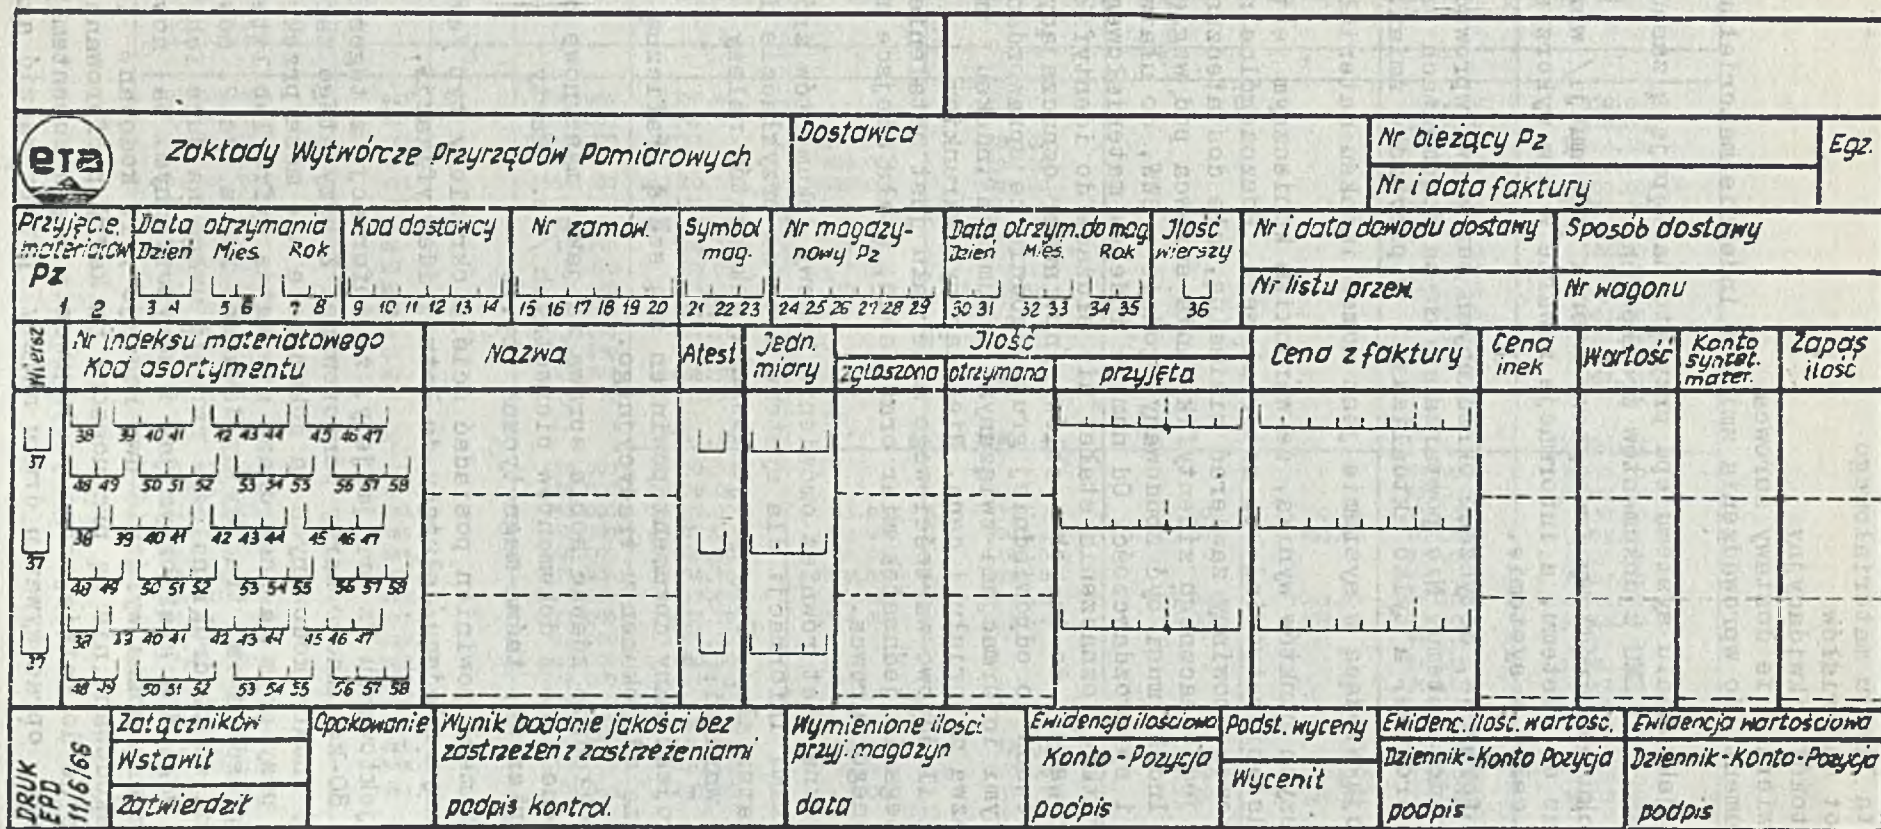 era
Zakłady Wytwórcze Przyrządów Pomiarowych
Dostawca
Nr bieżący Pz
Egz.
Nr i data faktury
Przyjęcie materiałów Pz
1 2
Data otrzymania
Dzień Mies. Rok
3 4 5 6 7 8
Kod dostawcy
9 10 11 12 13 14
Nr zamów.
15 16 17 18 19 20
Symbol mag.
21 22 23
Nr magazynowy Pz
24 25 26 27 28 29
Data otrzym. do mag.
Dzień Mies. Rok
30 31 32 33 34 35
Ilość wierszy
36
Nr i data dowodu dostawy
Sposób dostawy
Nr listu przew.
Nr wagonu
Wiersz
Nr indeksu materiałowego
Kod asortymentu
Nazwa
Atest
Jedn. miary
Ilość
zgłoszona
otrzymana
przyjęta
Cena z faktury
Cena inek
Wartość
Konto syntet. mater.
Zapas ilość
38 39 40 41 42 43 44 45 46 47
37
48 49 50 51 52 53 54 55 56 57 58
38 39 40 41 42 43 44 45 46 47
37
48 49 50 51 52 53 54 55 56 57 58
38 39 40 41 42 43 44 45 46 47
37
48 49 50 51 52 53 54 55 56 57 58
DRUK
EPD
11/6/66
Załączników
Wstawił
Zatwierdził
Opakowanie
Wynik badanie jakości bez
zastrzeżeń z zastrzeżeniami
podpis kontrol.
Wymienione ilości
przyj. magazyn
data
Ewidencja ilościowa
Konto - Pozycja
podpis
Podst. wyceny
Wycenił
Ewidenc. ilość. wartość.
Dziennik-Konto Pozycja
podpis
Ewidencja wartościowa
Dziennik-Konto-Pozycja
podpis